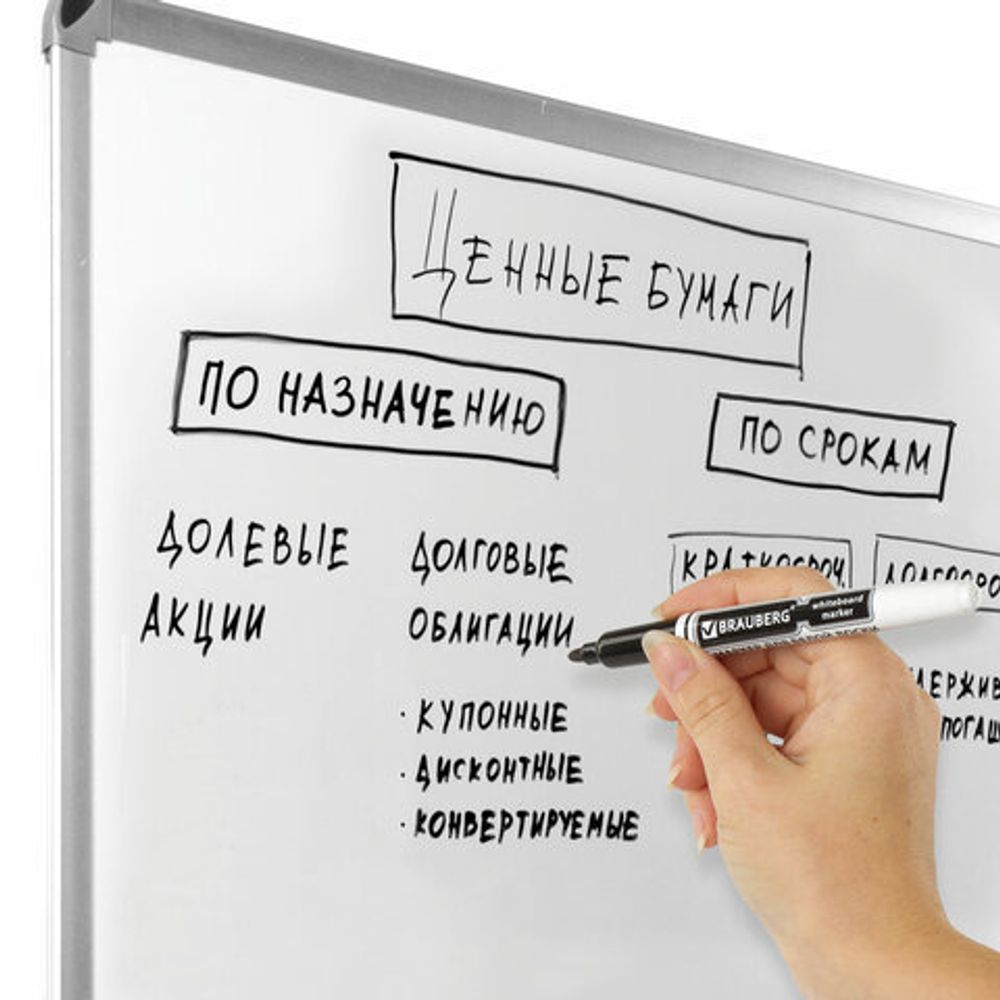 ЦЕННЫЕ БУМАГИ
ПО НАЗНАЧЕНИЮ
ПО СРОКАМ
ДОЛЕВЫЕ
АКЦИИ
ДОЛГОВЫЕ
ОБЛИГАЦИИ
· КУПОННЫЕ
· ДИСКОНТНЫЕ
· КОНВЕРТИРУЕМЫЕ
КРАТКОСРОЧ.
BRAUBERG
whiteboard
marker